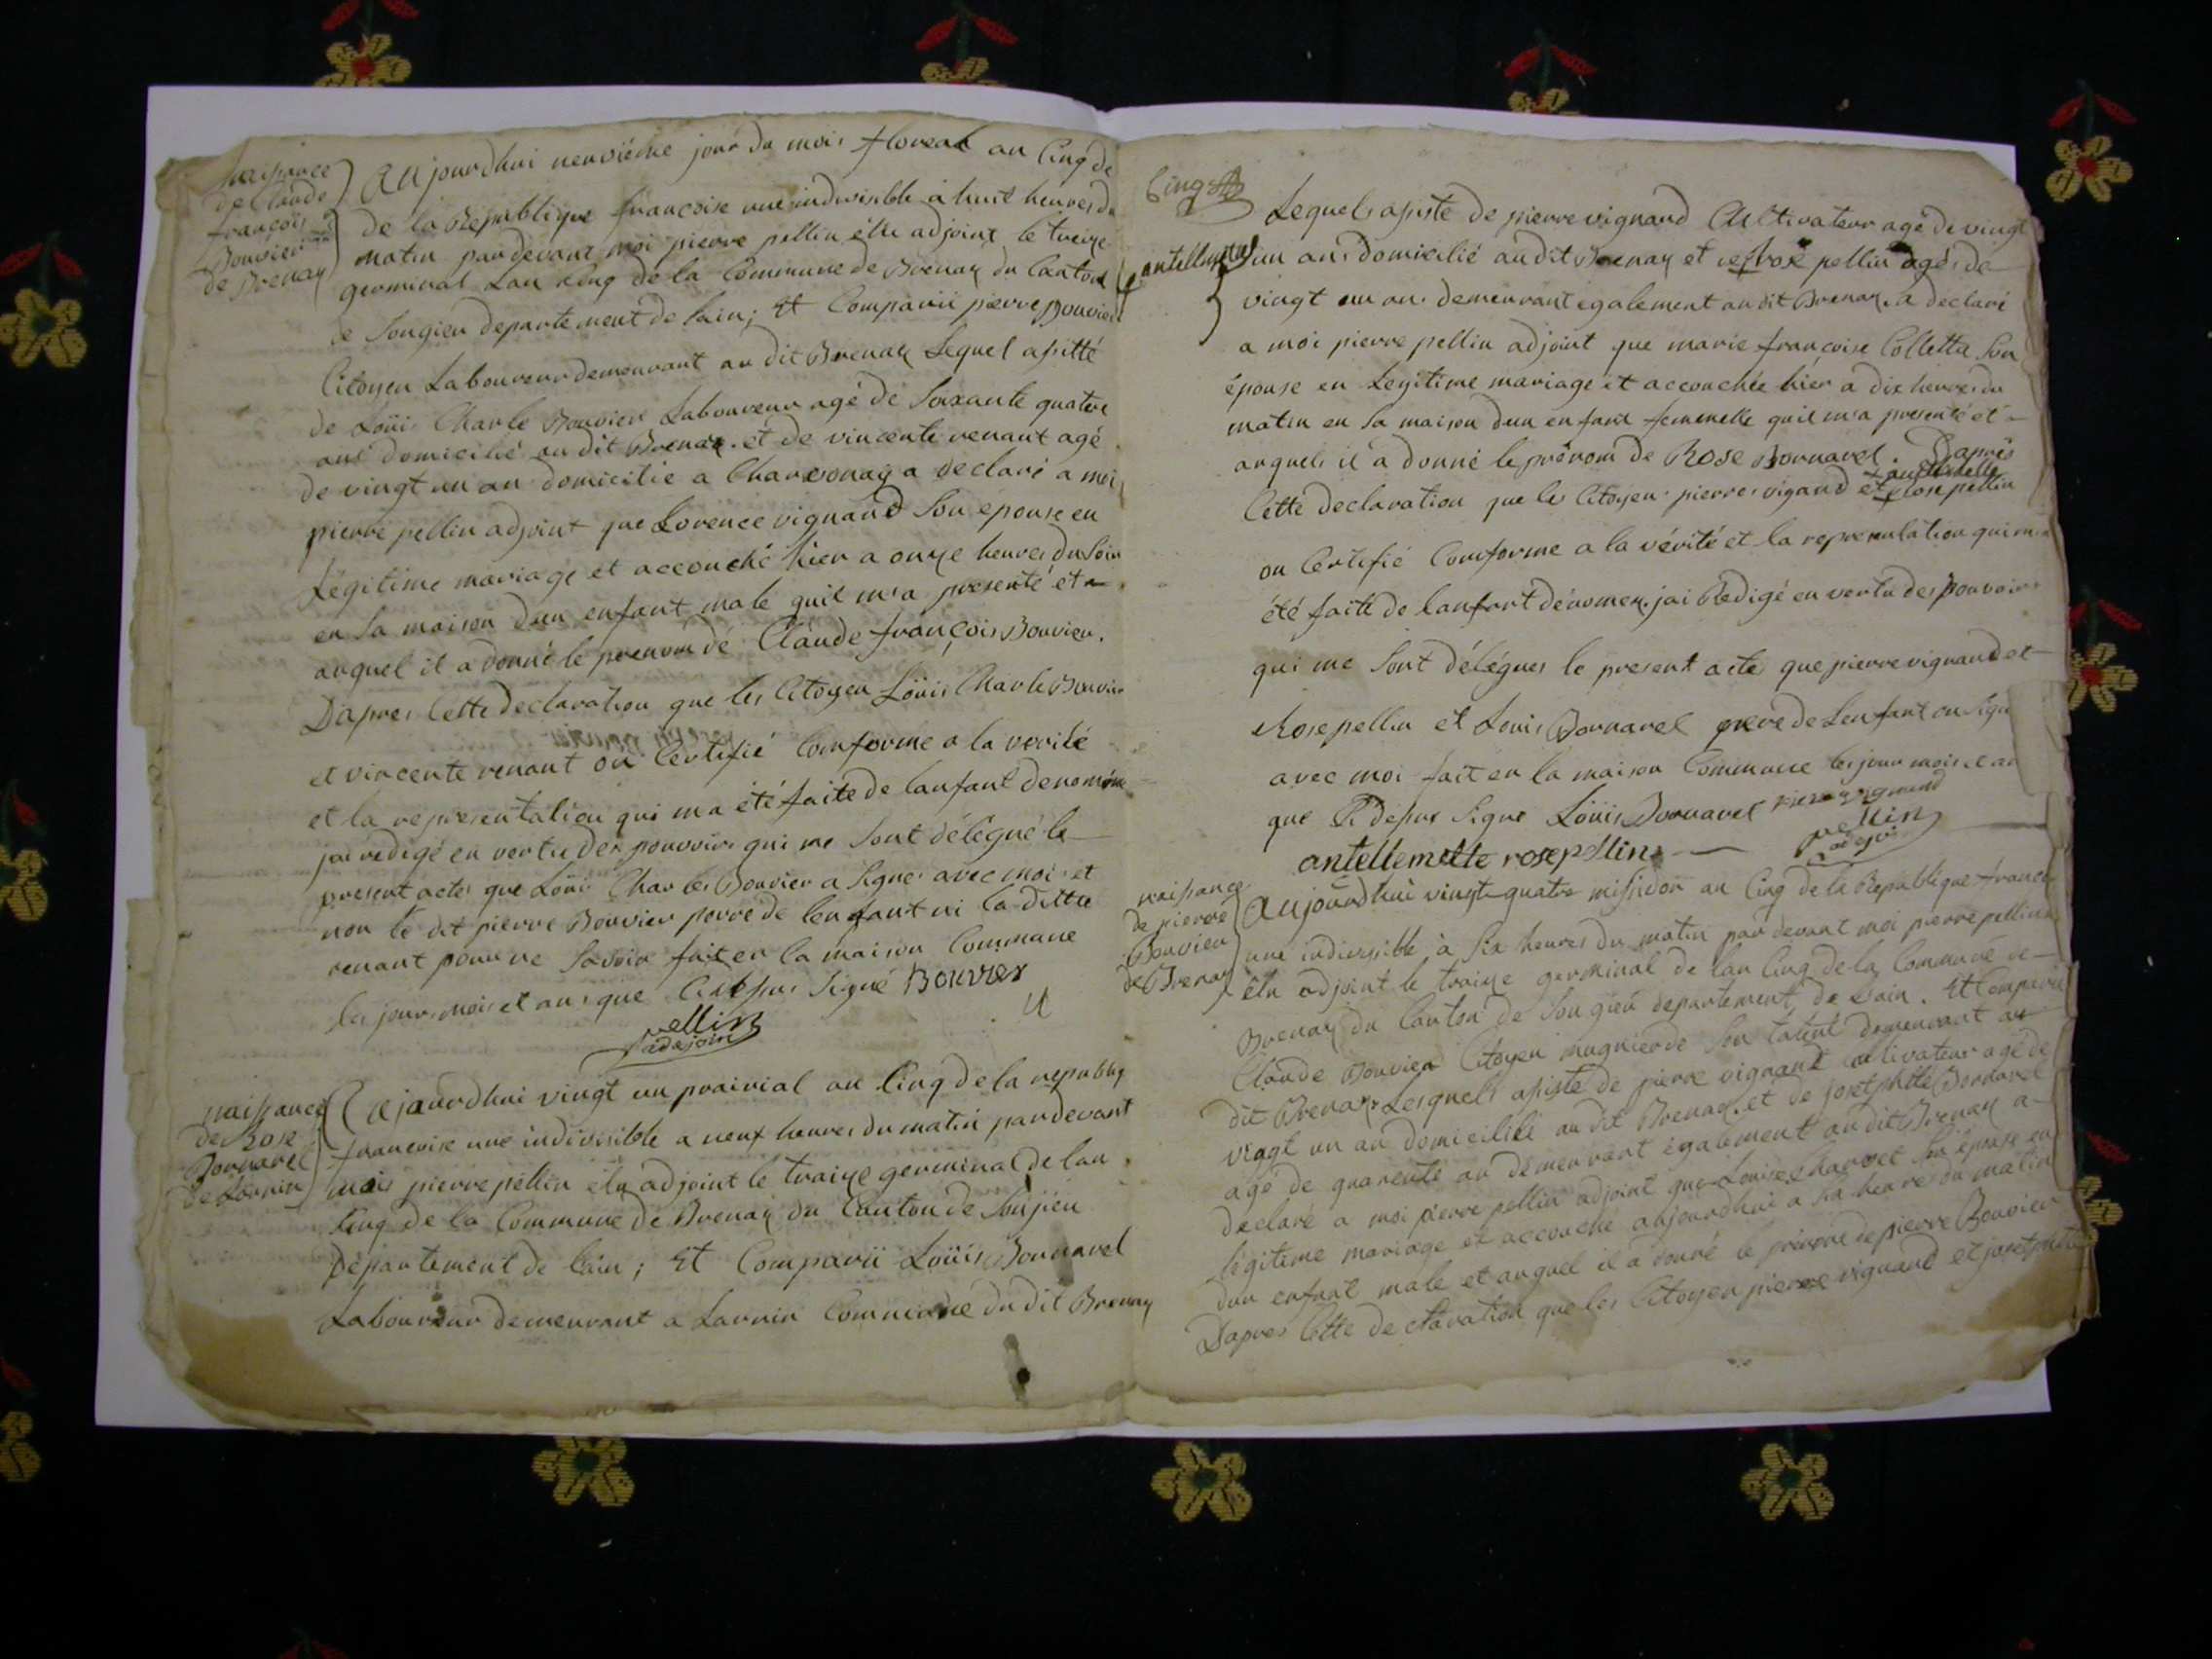 Naissance
de Claude
françois
Bouvier
de Brenaz
Aujourdhui neuvième jour du mois floreal an Cinq de
de la Republique francoise une indivisible à huit heures du
matin pardevant moi pierre pellin élu adjoint le treize
germinal Lan cinq de la Commune de Brenaz du Canton
de Songieu departement de lain; Et Comparü pierre Bouvier
Citoyen Laboureur demeurant au dit Brenaz Lequel assitté
de Loüis Charle Bouvier Laboureur agé de Soixante quatre
ans domicilié au dit Brenaz et de vincente renant agé
de vingt un an domicilié a Charvonay a declaré a moi
pierre pellin adjoint que Lorence vignand Son epouse en
Légitime mariage et accouché hier a onze heures du Soir
en Sa maison dun enfant male quil m'a presenté et a
auquel il a donné le prenom dé Claude françois Bouvier.
Dapres Cette declaration que les Citoyen Loüis Charle Bouvier
et vincente renant on Certifié Comforme a la verité
et la representation qui ma été faite de lanfant denomémé
jai redigé en vertu des pouvoirs qui me Sont délégué le
present acte que Loüis Charles Bouvier a Signer avec moi et
non le dit pierre Bouvier perre de lenfant ni la ditte
renant pour ne Savoir fait en la maison Commune
les jour mois et ans que Cidessus Signé Bouvier
pellin
adajoin
naissance
de Rose
Bornarel
de Lornin
Aejaurdhui vingt un prairial an Cinq de la republiq
francoise une indivisible a neuf heures du matin pardevant
mois pierre pellin élu adjoint le traize germinal de lan
Cinq de la Commune de Brenaz du Canton de Sonjieu
département de lain; Et Comparü Loüis Bornarel
Laboureur demeurant a Larnin Commune du dit Brenaz
Cinq
Lequels assiste de pierre vignand Cultivateur agé de vingt
antellmette un ans domicilié audit Brenaz et rose pellin agés de
vingt un an demeurant également audit Brenaz a declaré
a moi pierre pellin adjoint que marie françoise Collette Son
épouse en Legitime mariage et accouchée hier a dix heures du
matin en Sa maison dun enfant femmelle quil m'a presenté et
auquels il a donné le prénom de Rose Bornarel. Daprés
Cette declaration que les Citoyen pierre vigand et rose pellin
on Certifié Comforme a la vérité et la representation qui m'a
été faite de lanfant dénomez jai Redigé en vertu des pouvoirs
qui me Sont délégues le present acte que pierre vignand et
Rose pellin et Louis Bornarel pere de Lenfant on Signé
avec moi fait en la maison Commune les jour mois et an
que Cidepus Signe Loüis Bornarel pierre vignand
antellemette rose pellin
pellin
adejoi
naissance
de pierre
Bouvier
de Brenaz
Aujourdhui vingt quatre missidor an Cinq de la Republique france
une indivisible à Six heures du matin pardevant moi pierre pellin
élu adjoint le traize germinal de lan Cinq de la Commune de
Brenaz du Canton de Songieu departement de Lain. Et Comparu
Claude Bouvier Citoyen mugnier de Son talent demeurant au
dit Brenaz Lesquels assiste de pierre vignand cultivateur agé de
vingt un an domicilié au dit Brenaz et de josetphtte Bornarel
agé de quarente an demeurant également audit Brenaz a
declaré a moi pierre pellin adjoint que Louise Charvet Son épouse en
légitime mariage et accouché aujourdhui a Six heure du matin
dun enfant male et auquel il a donné le prenom de pierre Bouvier
Dapres Cette declaration que les Citoyen pierre vignand et josetphtte